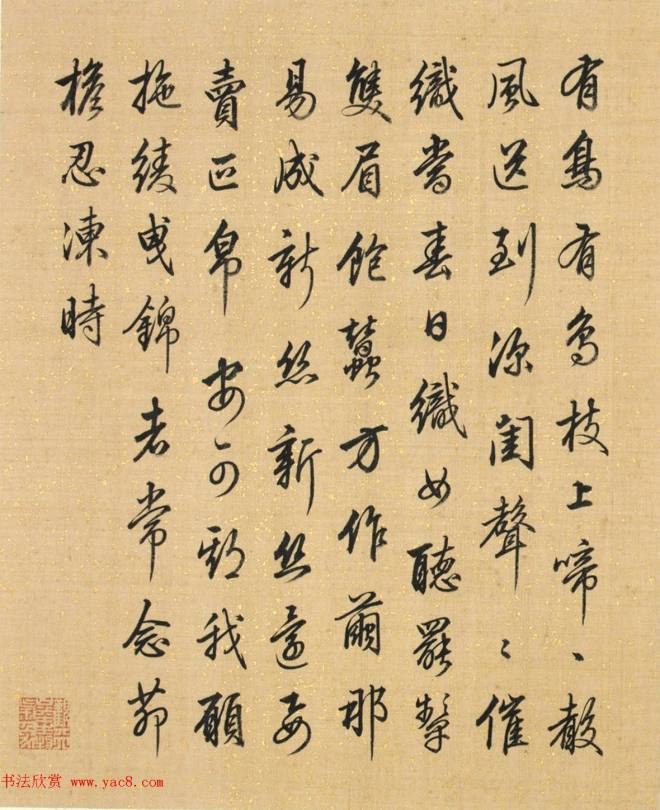 有鳥有鳥枝上啼、散
風送到深閨聲、催
織當春日織女聽罷顰
雙眉飽蠶方作繭那
易成新絲新絲還要
賣疋帛安可期我願
拖綾曳錦者常念茆
檐忍凍時
书法欣赏 www.yac8.com